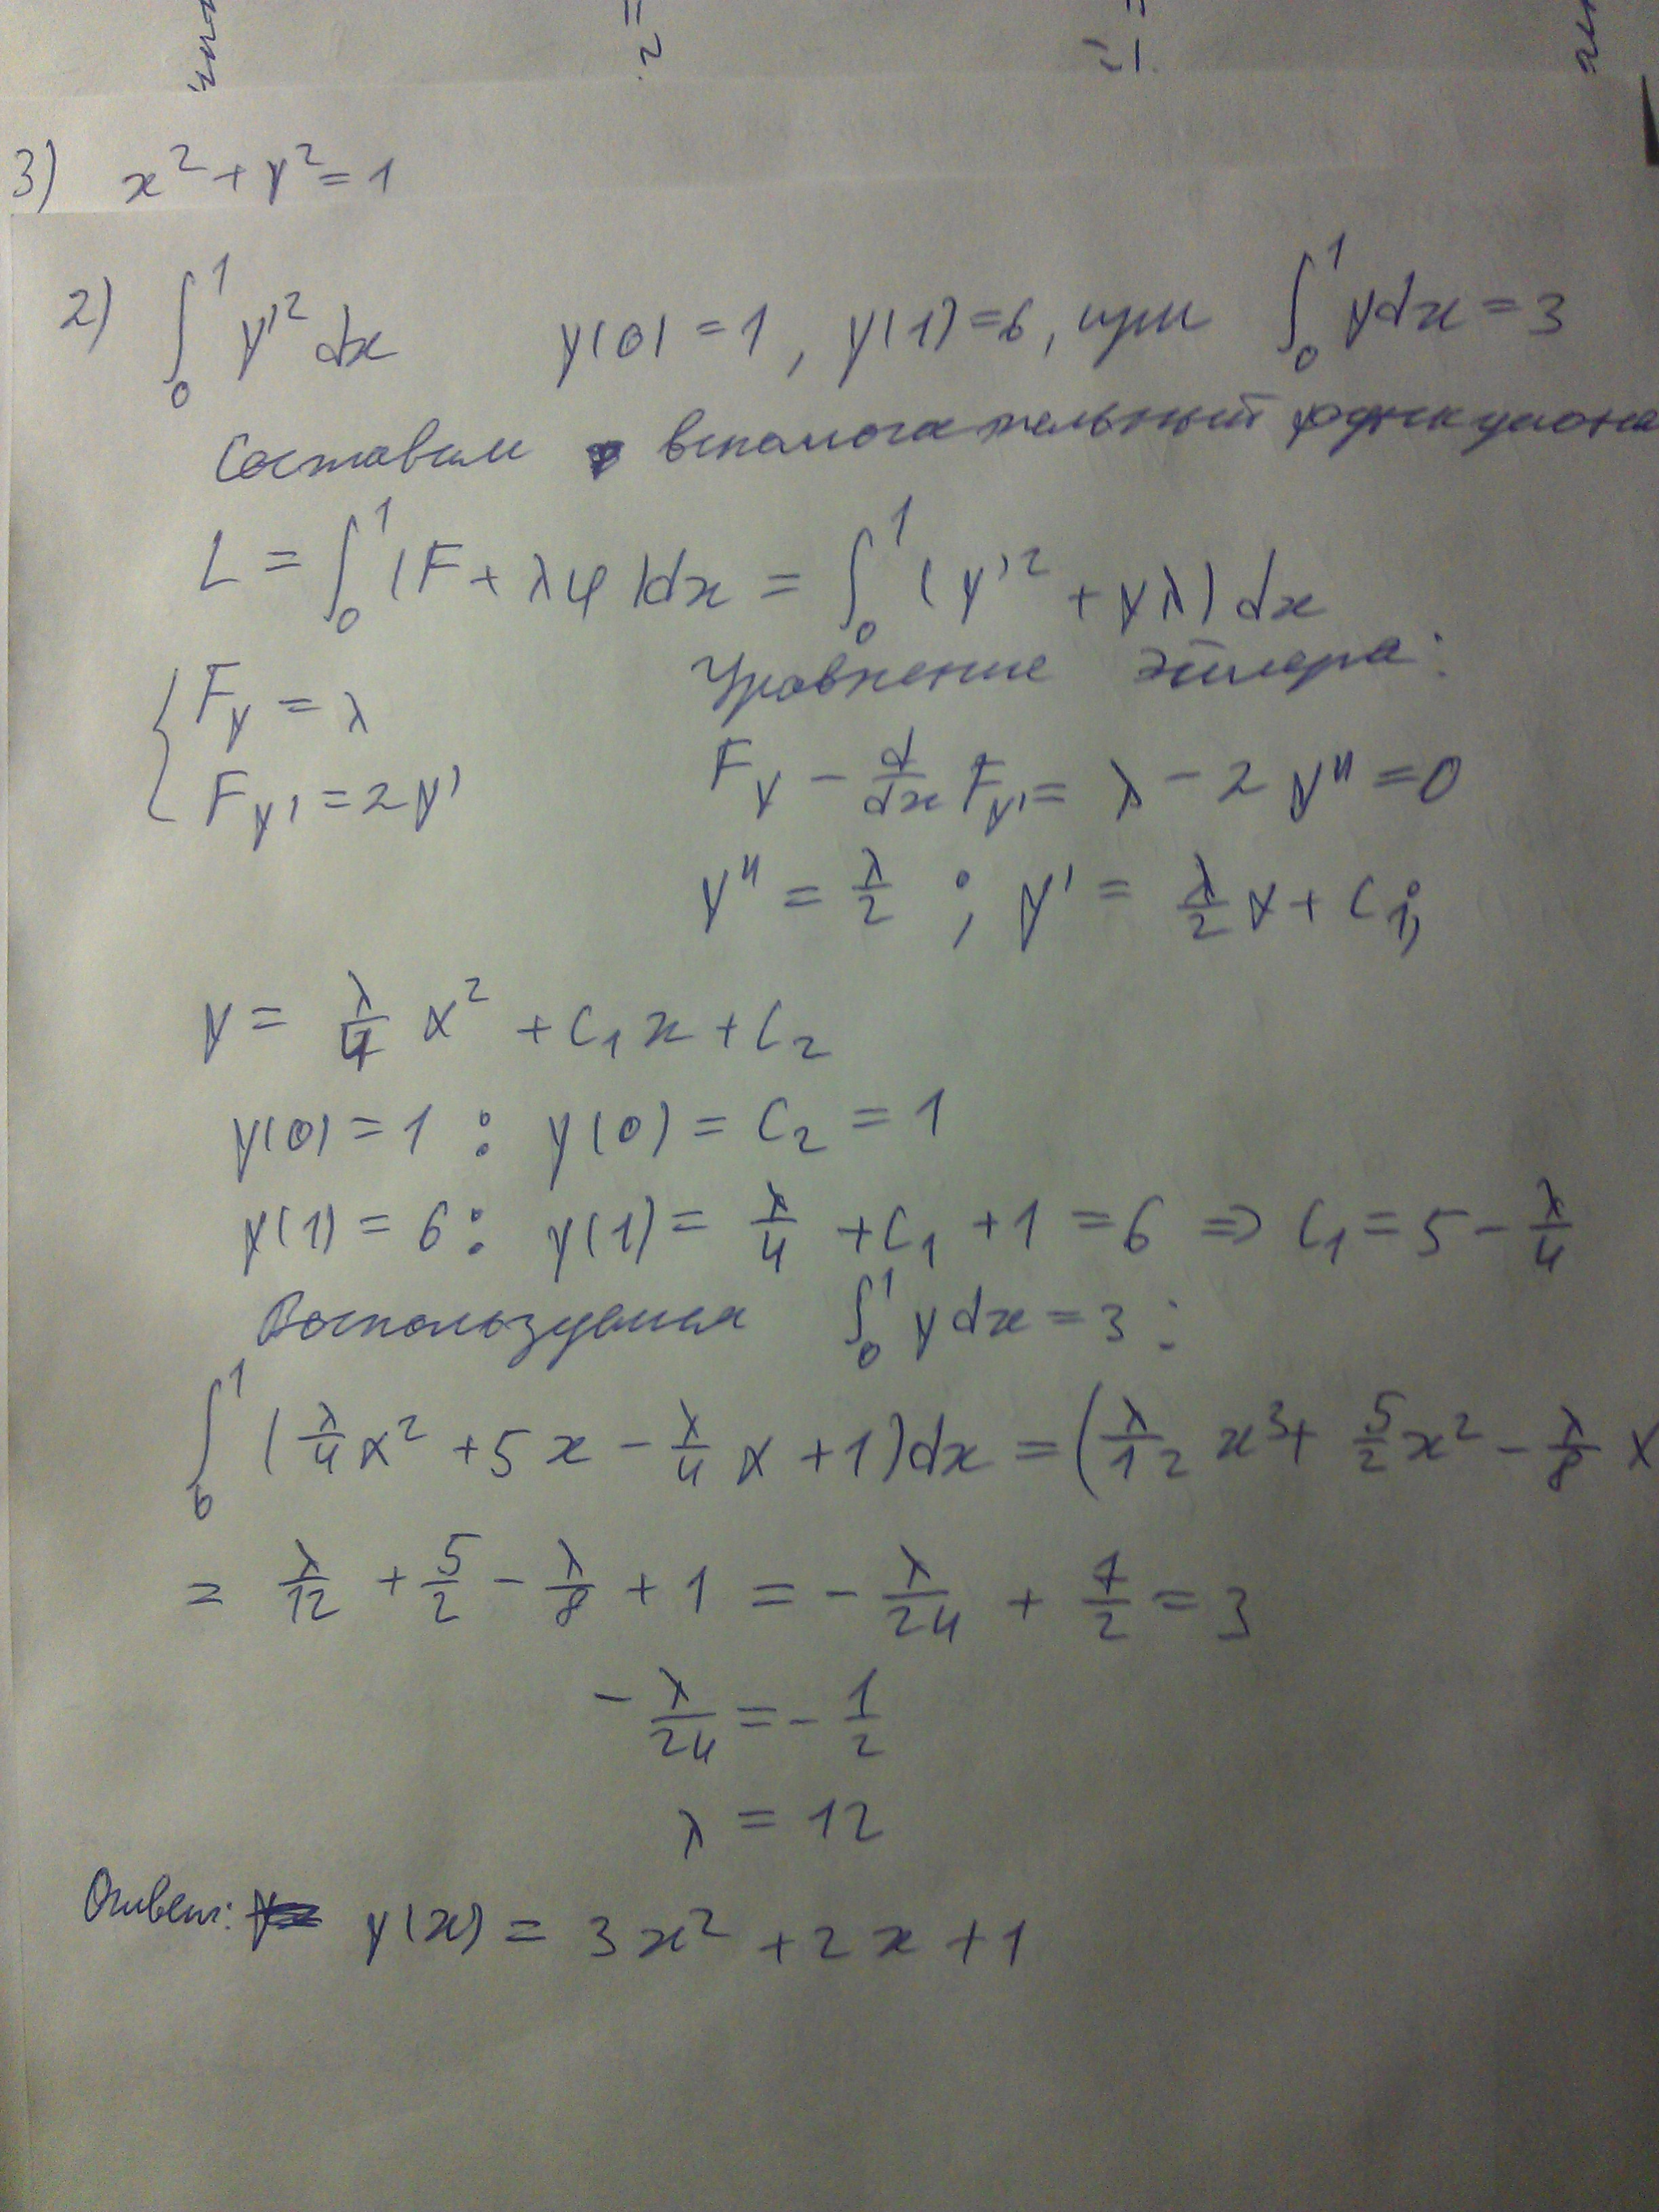 =1.
3) x² + y² = 1
2) ∫₀¹ y'² dx   y(0) = 1, y(1) = 6, при ∫₀¹ y dx = 3
Составим вспомогательный функциона
L = ∫₀¹ (F + λφ) dx = ∫₀¹ (y'² + yλ) dx
{ F_y = λ   Уравнение Эйлера:
F_y' = 2y'   F_y − d/dx F_y' = λ − 2y'' = 0
y'' = λ/2 ; y' = λ/2 x + C₁;
y = λ/4 x² + C₁x + C₂
y(0) = 1 : y(0) = C₂ = 1
y(1) = 6 : y(1) = λ/4 + C₁ + 1 = 6 ⇒ C₁ = 5 − λ/4
Воспользуемся ∫₀¹ y dx = 3 :
∫₀¹ (λ/4 x² + 5x − λ/4 x + 1) dx = (λ/12 x³ + 5/2 x² − λ/8 x
= λ/12 + 5/2 − λ/8 + 1 = − λ/24 + 7/2 = 3
− λ/24 = − 1/2
λ = 12
Ответ: y(x) = 3x² + 2x + 1